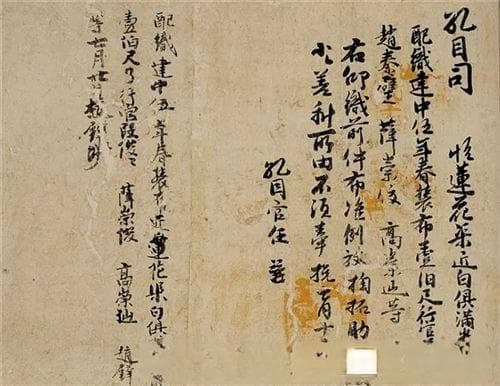 孔目司 帖蓮花渠匠白俱滿失
配織建中伍年春裝布壹伯尺行官
趙秦璧 薛崇俊 高崇仙等
右仰織前件布准例放掏拓助
小差科所由不須牽挽七月十
孔目官任
配織建中伍年春裝布匠蓮花渠白俱
壹伯尺了行官段俊俊 薛崇俊 高崇仙 趙
等七月廿日趙